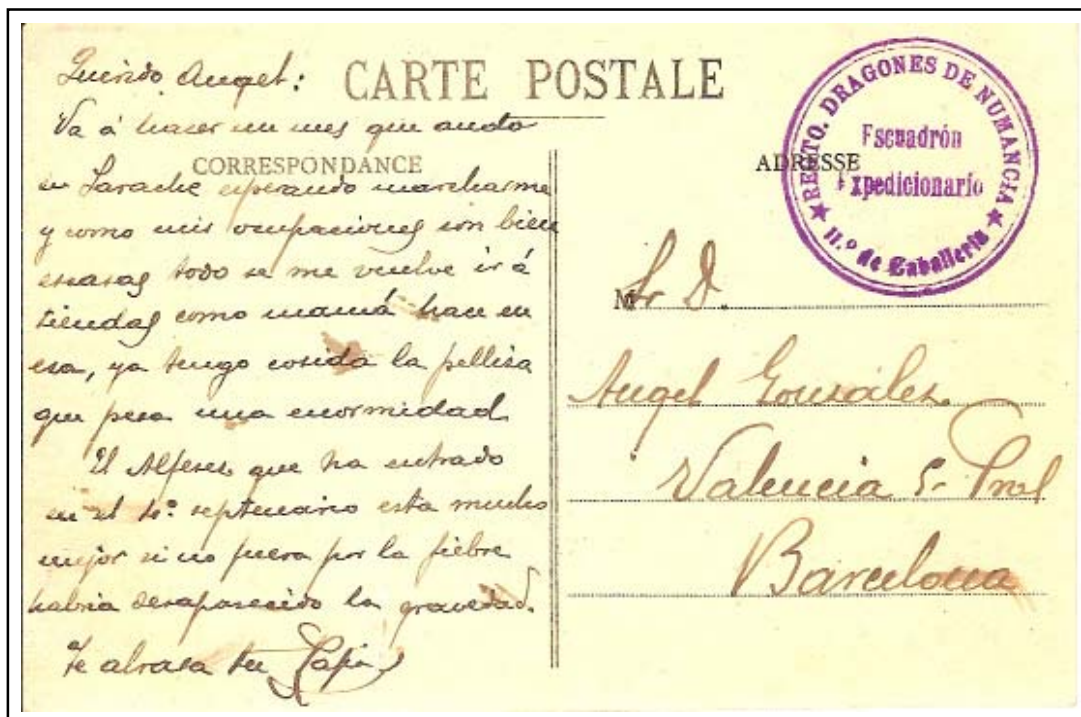 CARTE POSTALE
CORRESPONDANCE
ADRESSE
Querido Angel:
Va á hacer un mes que ando
en Larache esperando marcharme
y como mis ocupaciones son bien
escasas todo se me vuelve ir á
tiendas como mamá hace en
esa, ya tengo cosida la pelliza
que pesa una enormidad.
El Alferez que ha entrado
en el 4º septenario esta mucho
mejor si no fuera por la fiebre
habria desaparecido la gravedad.
Te abraza tu Papá
REGTO. DRAGONES DE NUMANCIA
Escuadrón
Expedicionario
★ 11.º de Caballería ★
Sr D.
Angel González
Valencia 5- Pral
Barcelona